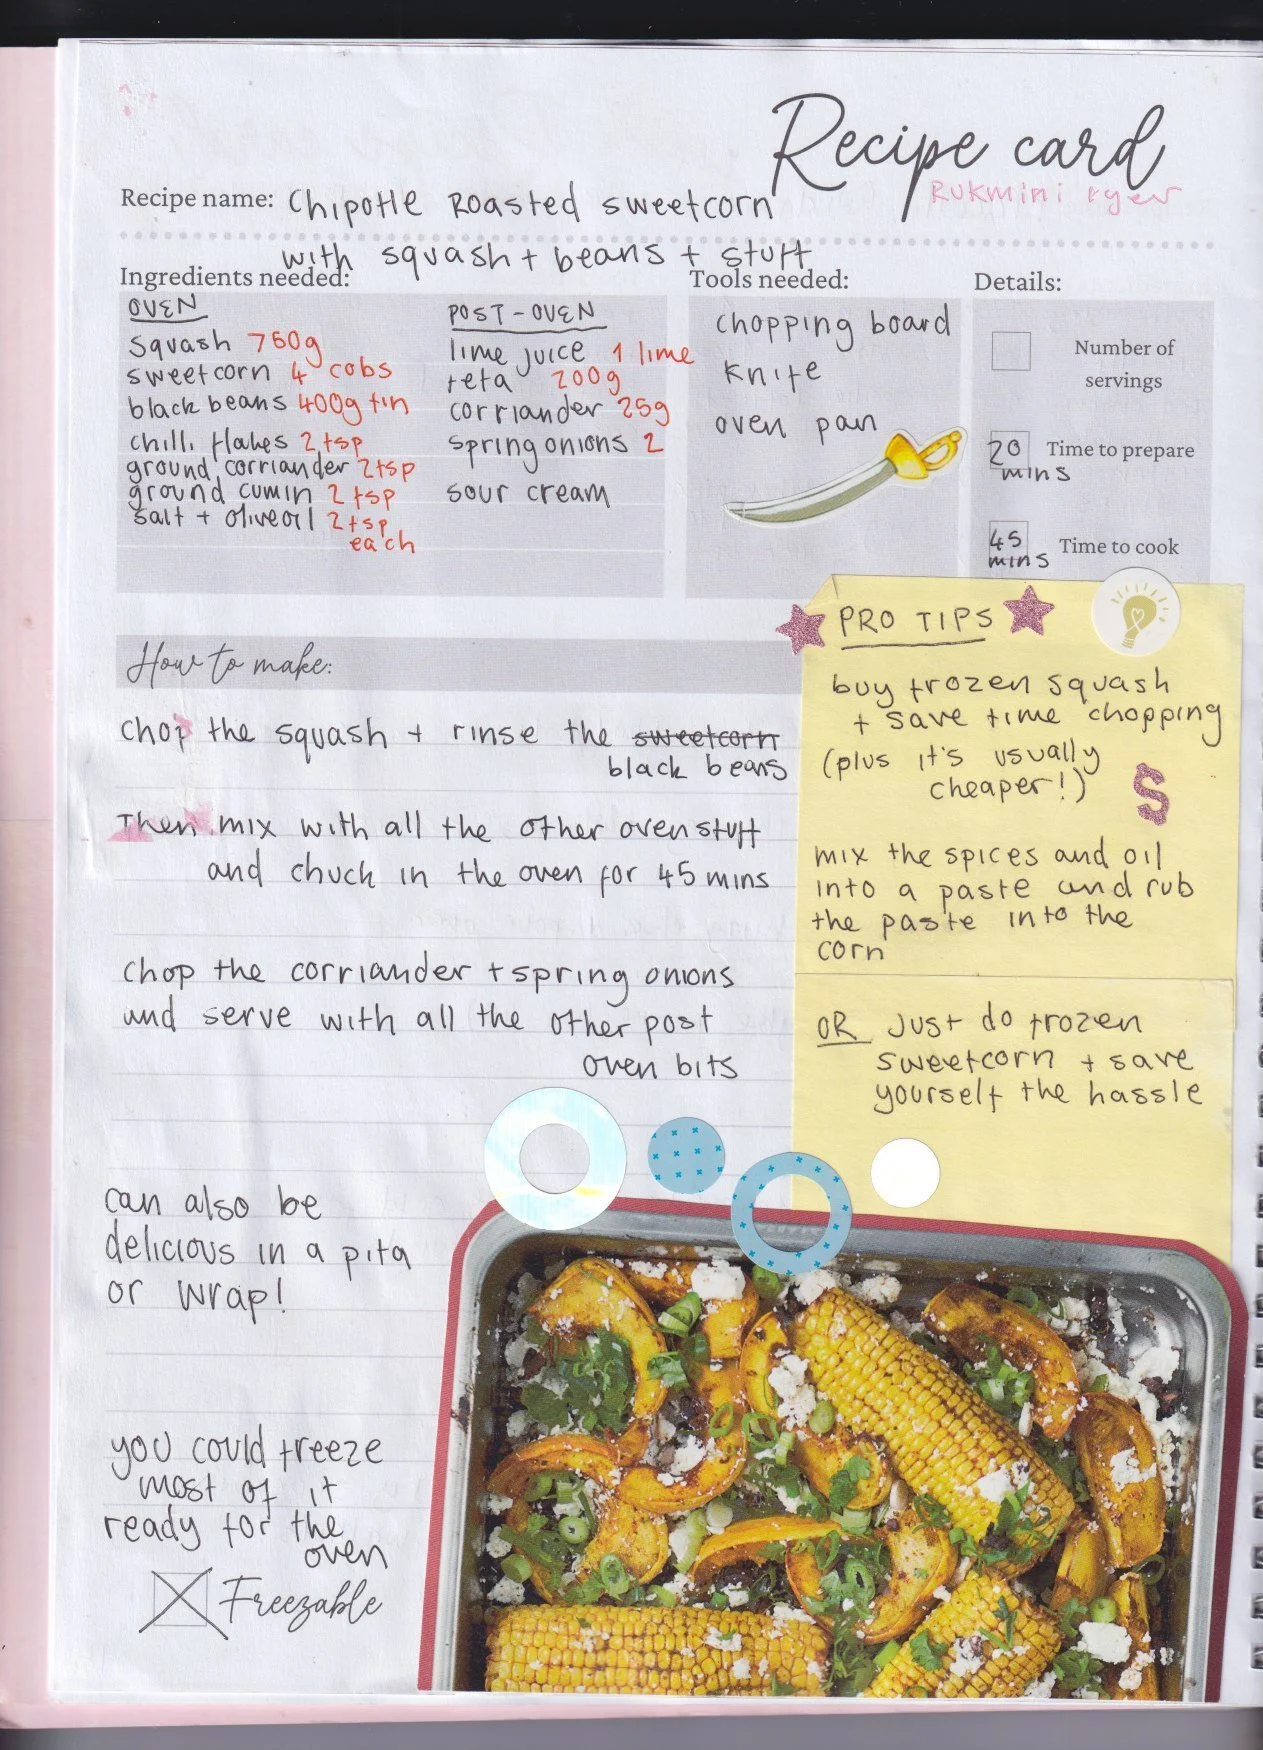 Recipe card
Rukmini Iyer
Recipe name: Chipotle Roasted sweetcorn
with squash + beans + stuff
Ingredients needed:
OVEN
squash 750g
sweetcorn 4 cobs
black beans 400g tin
chilli flakes 2 tsp
ground corriander 2tsp
ground cumin 2 tsp
salt + olive oil 2 tsp
each
POST-OVEN
lime juice 1 lime
feta 200g
corriander 25g
spring onions 2
sour cream
Tools needed:
chopping board
knife
oven pan
Details:
Number of
servings
20 mins Time to prepare
45 mins Time to cook
How to make:
chop the squash + rinse the sweetcorn
black beans
Then mix with all the other oven stuff
and chuck in the oven for 45 mins
chop the corriander + spring onions
and serve with all the other post
oven bits
PRO TIPS
buy frozen squash
+ save time chopping
(plus it's usually
cheaper!)
S
mix the spices and oil
into a paste and rub
the paste into the
corn
OR just do frozen
sweetcorn + save
yourself the hassle
can also be
delicious in a pita
or wrap!
you could freeze
most of it
ready for the
oven
Freezable